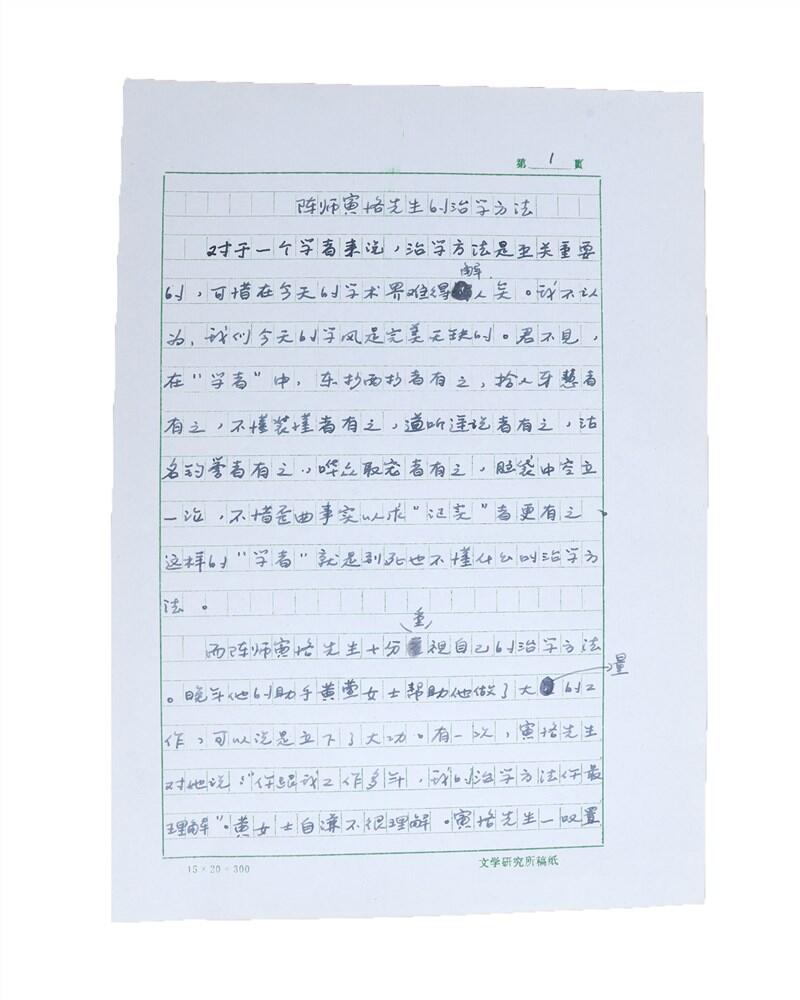 第 1 页
陈师寅恪先生的治学方法
对于一个学者来说，治学方法是至关重要
的，可惜在今天的学术界难得解人矣。我不认
为，我们今天的学风是完美无缺的。君不见，
在“学者”中，东抄西抄者有之，拾人牙慧者
有之，不懂装懂者有之，道听途说者有之，沽
名钓誉者有之，哗众取宠者有之，脑袋中空立
一论，不惜歪曲事实以求“证实”者更有之，
这样的“学者”就是到死也不懂什么叫治学方
法。
而陈师寅恪先生十分重视自己的治学方法
。晚年他的助手黄萱女士帮助他做了大量的工
作，可以说是立下了大功。有一次，寅恪先生
对她说：“你跟我工作多年，我的治学方法你最
理解”。黄女士自谦不很理解。寅恪先生一叹置
15×20=300
文学研究所稿纸